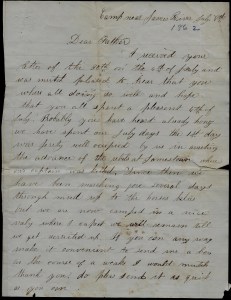 Camp near James River July 8th
1862
Dear Father
I received your
letter of the 30th in the 4th of July and
was much pleased to hear that you
where all doing so well and hope
that you all spent a pleasant 4th of
July. Probably you have heard already how
we have spent our July days the 1st day
was partly well occupied by us in
the advance of the rebels at
Since then we
have been marching for several days
through mud up to the knees
but we are now camped in a nice
valy where I expect we will remain till
we get recruited up. If you can any way
make it convenient to send me a box
in the course of a week I would much
thank you, do plese send it as quick
as you can